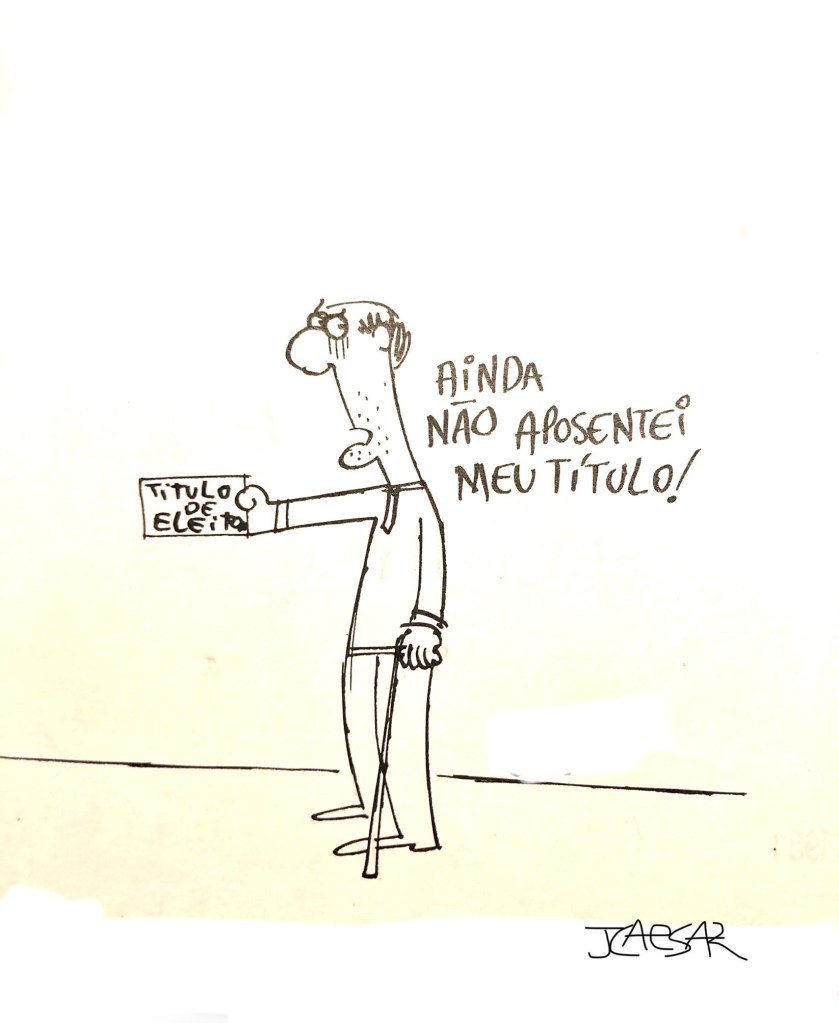 AINDA
NÃO APOSENTEI
MEU TÍTULO!
TÍTULO
DE
ELEITOR
JCAESAR